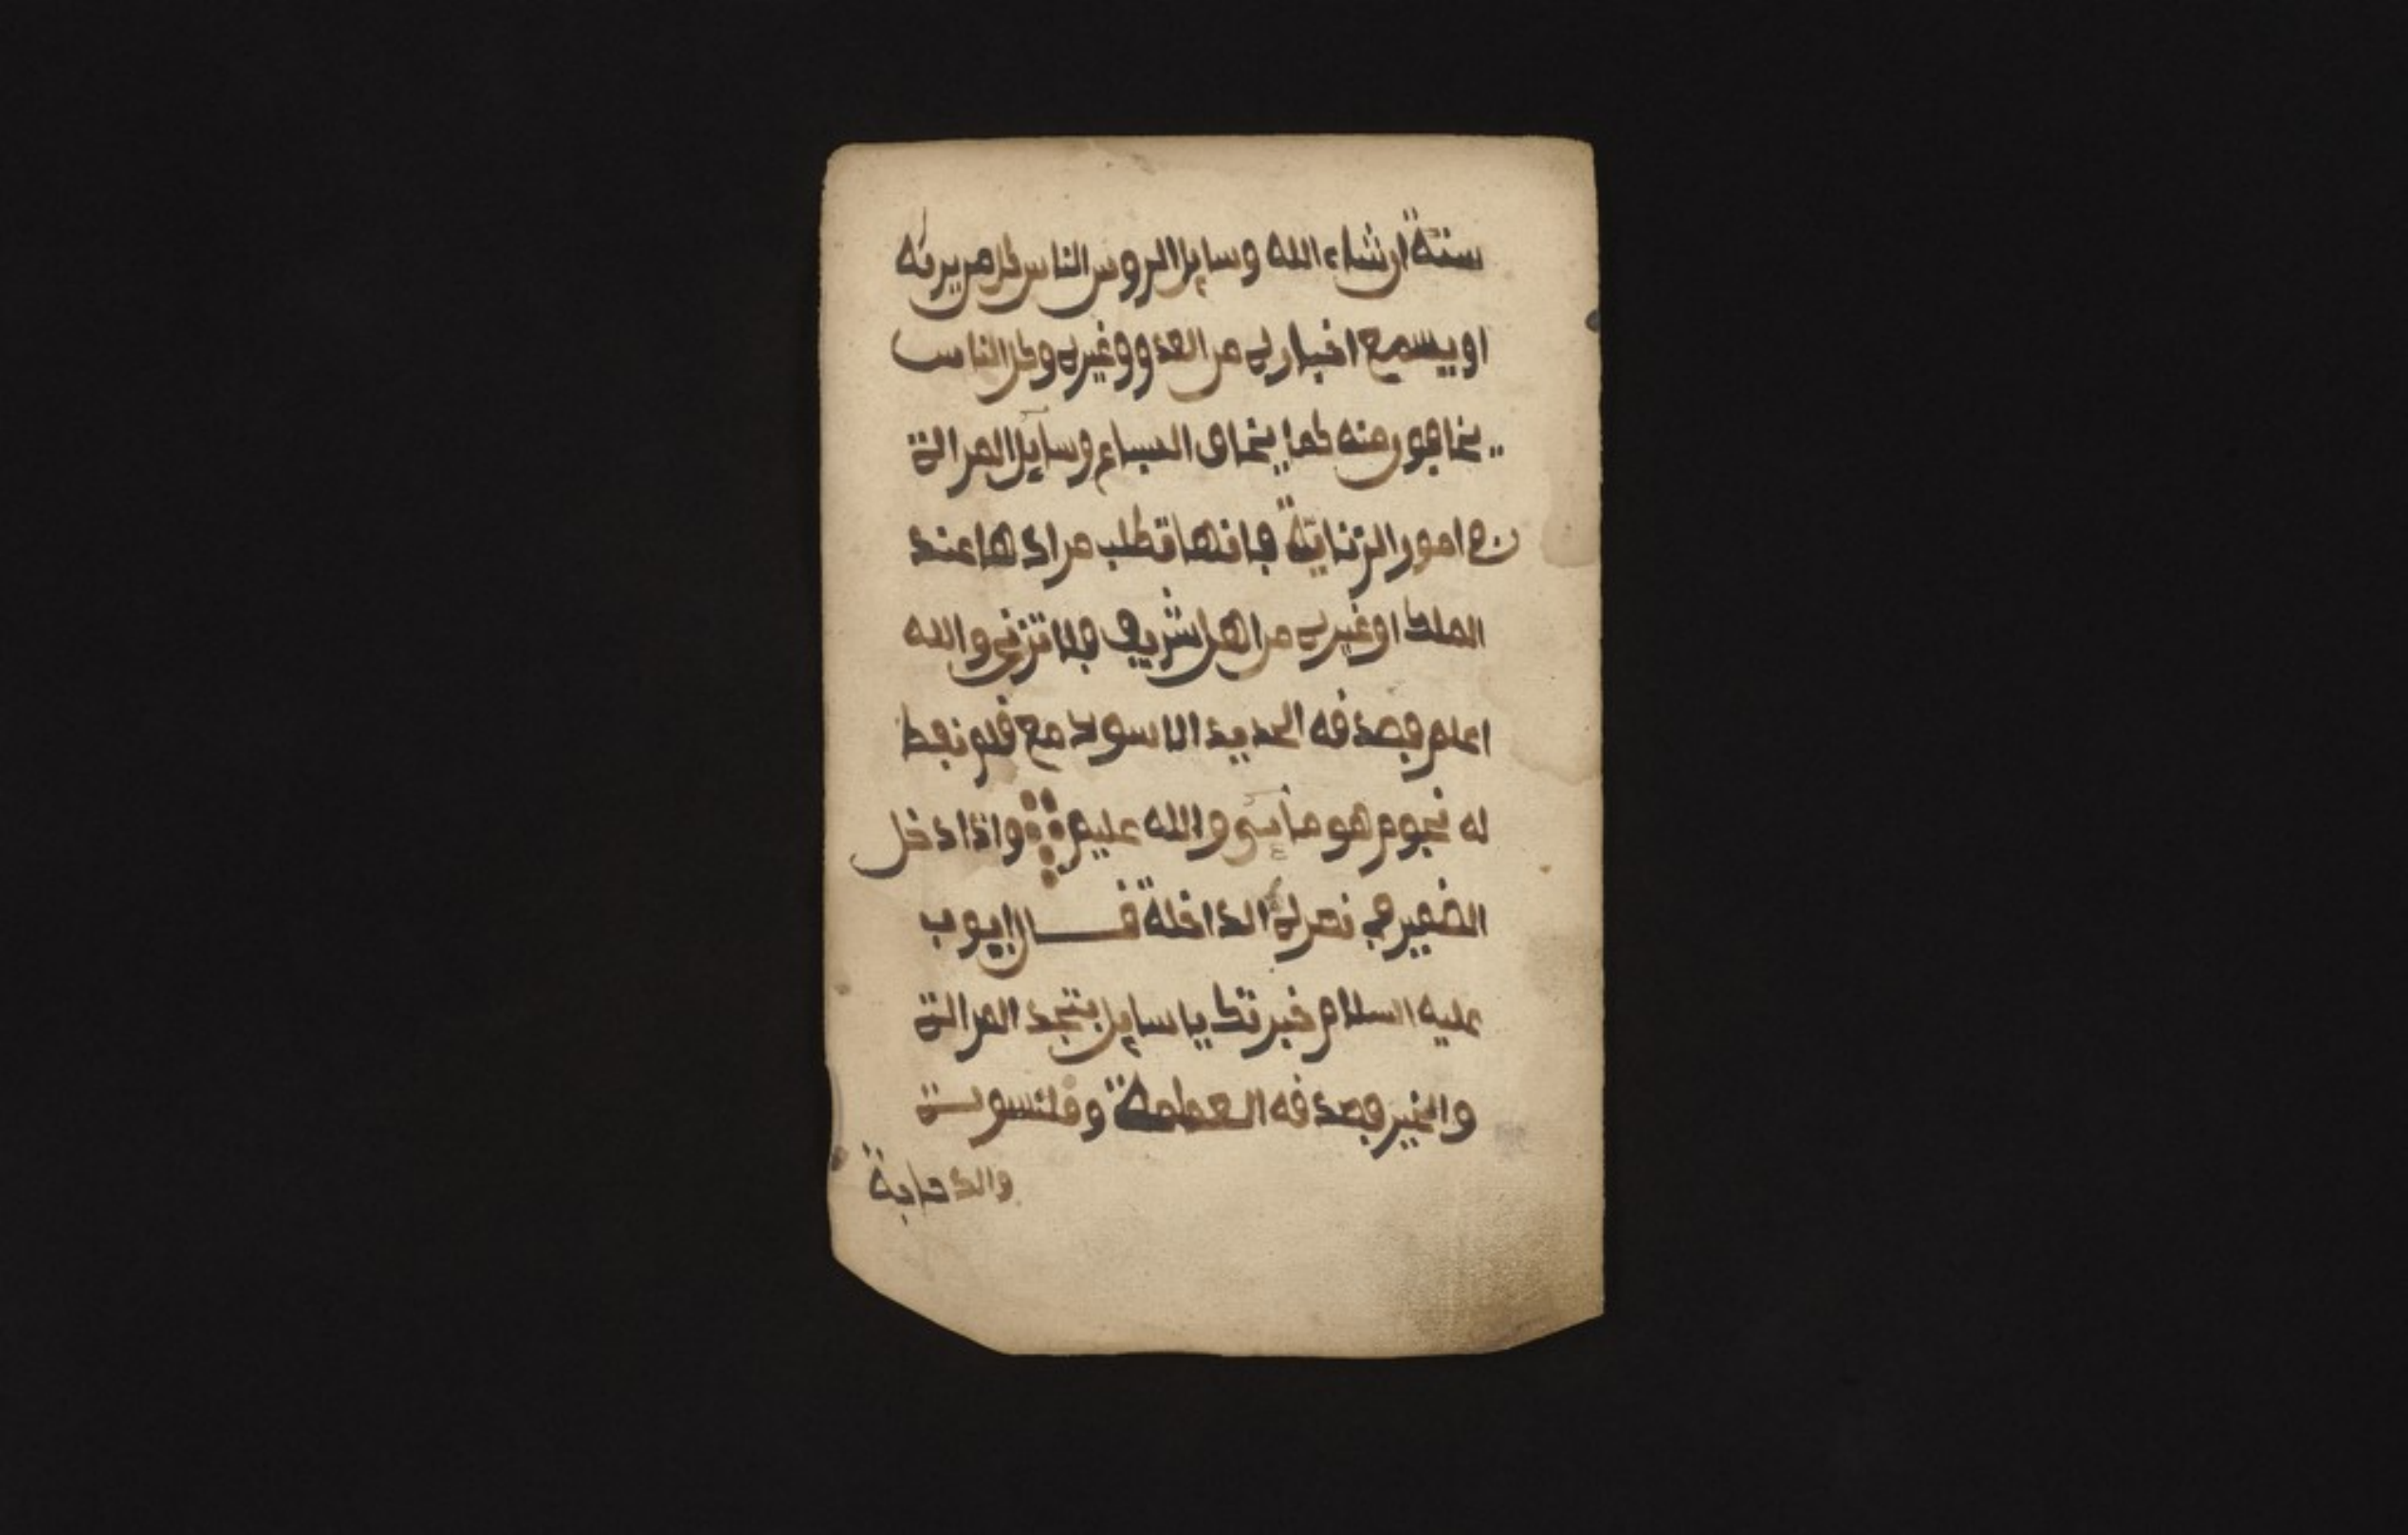 ستة ان شاء الله وسايل الروس الناس كل من يرفه
او يسمع اخباره من العدو وغيره وكل الناس
يخافون منه كما يخاف السباع وسايل المرالة
في امور الزناية فانها تطلب مرادها عند
الملك او غيره من اهل شريف فلا تزني والله
اعلم فصدفه الحديد الاسود مع قلم نفط
له نجوم هو والله عليم واذا دخل
الضمير في نصرة الداخلة قال ايوب
عليه السلام خبرتك يا سايل بتجد المرالة
والخير فصدفه العطمة وقلنسوت
والدحابة